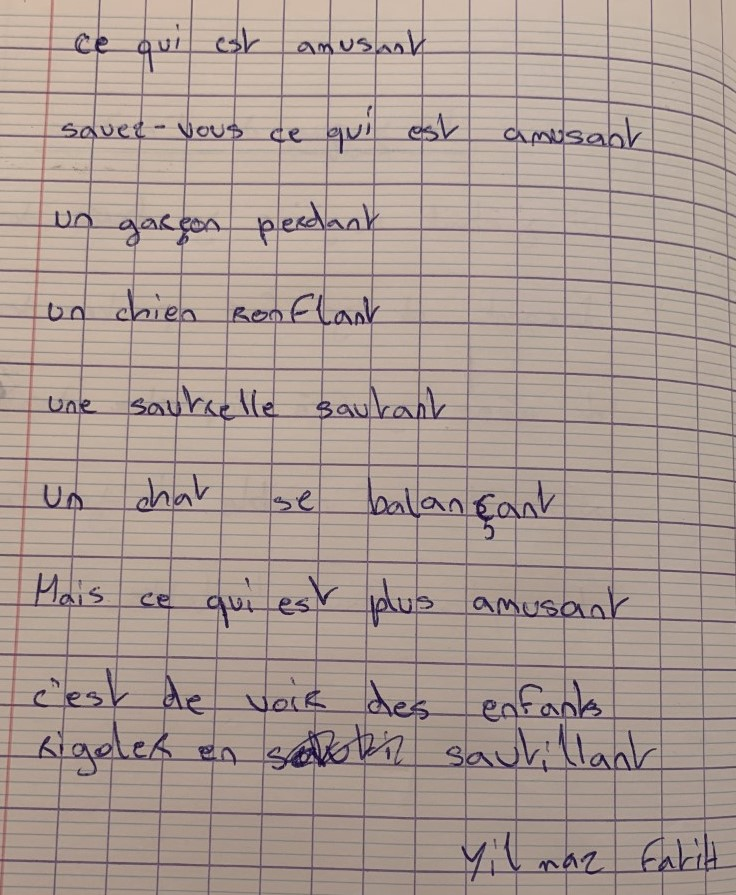 ce qui est amusant
savez-vous ce qui est amusant
un garçon perdant
un chien ronflant
une sautrelle sautant
un chat se balançant
Mais ce qui est plus amusant
c'est de voir des enfants
rigoler en sautillant
Yilmaz Fatih